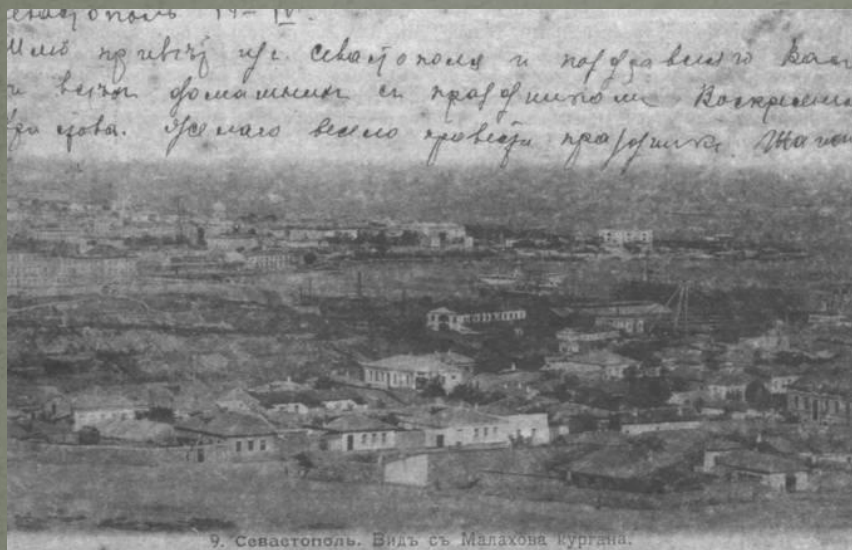 Севастополь 14–IV.
Шлю привет из Севастополя и поздравляю Вас
и всех домашних с праздником Воскресения
Христова. Желаю весело провести праздники.
9. Севастополь. Видъ съ Малахова кургана.